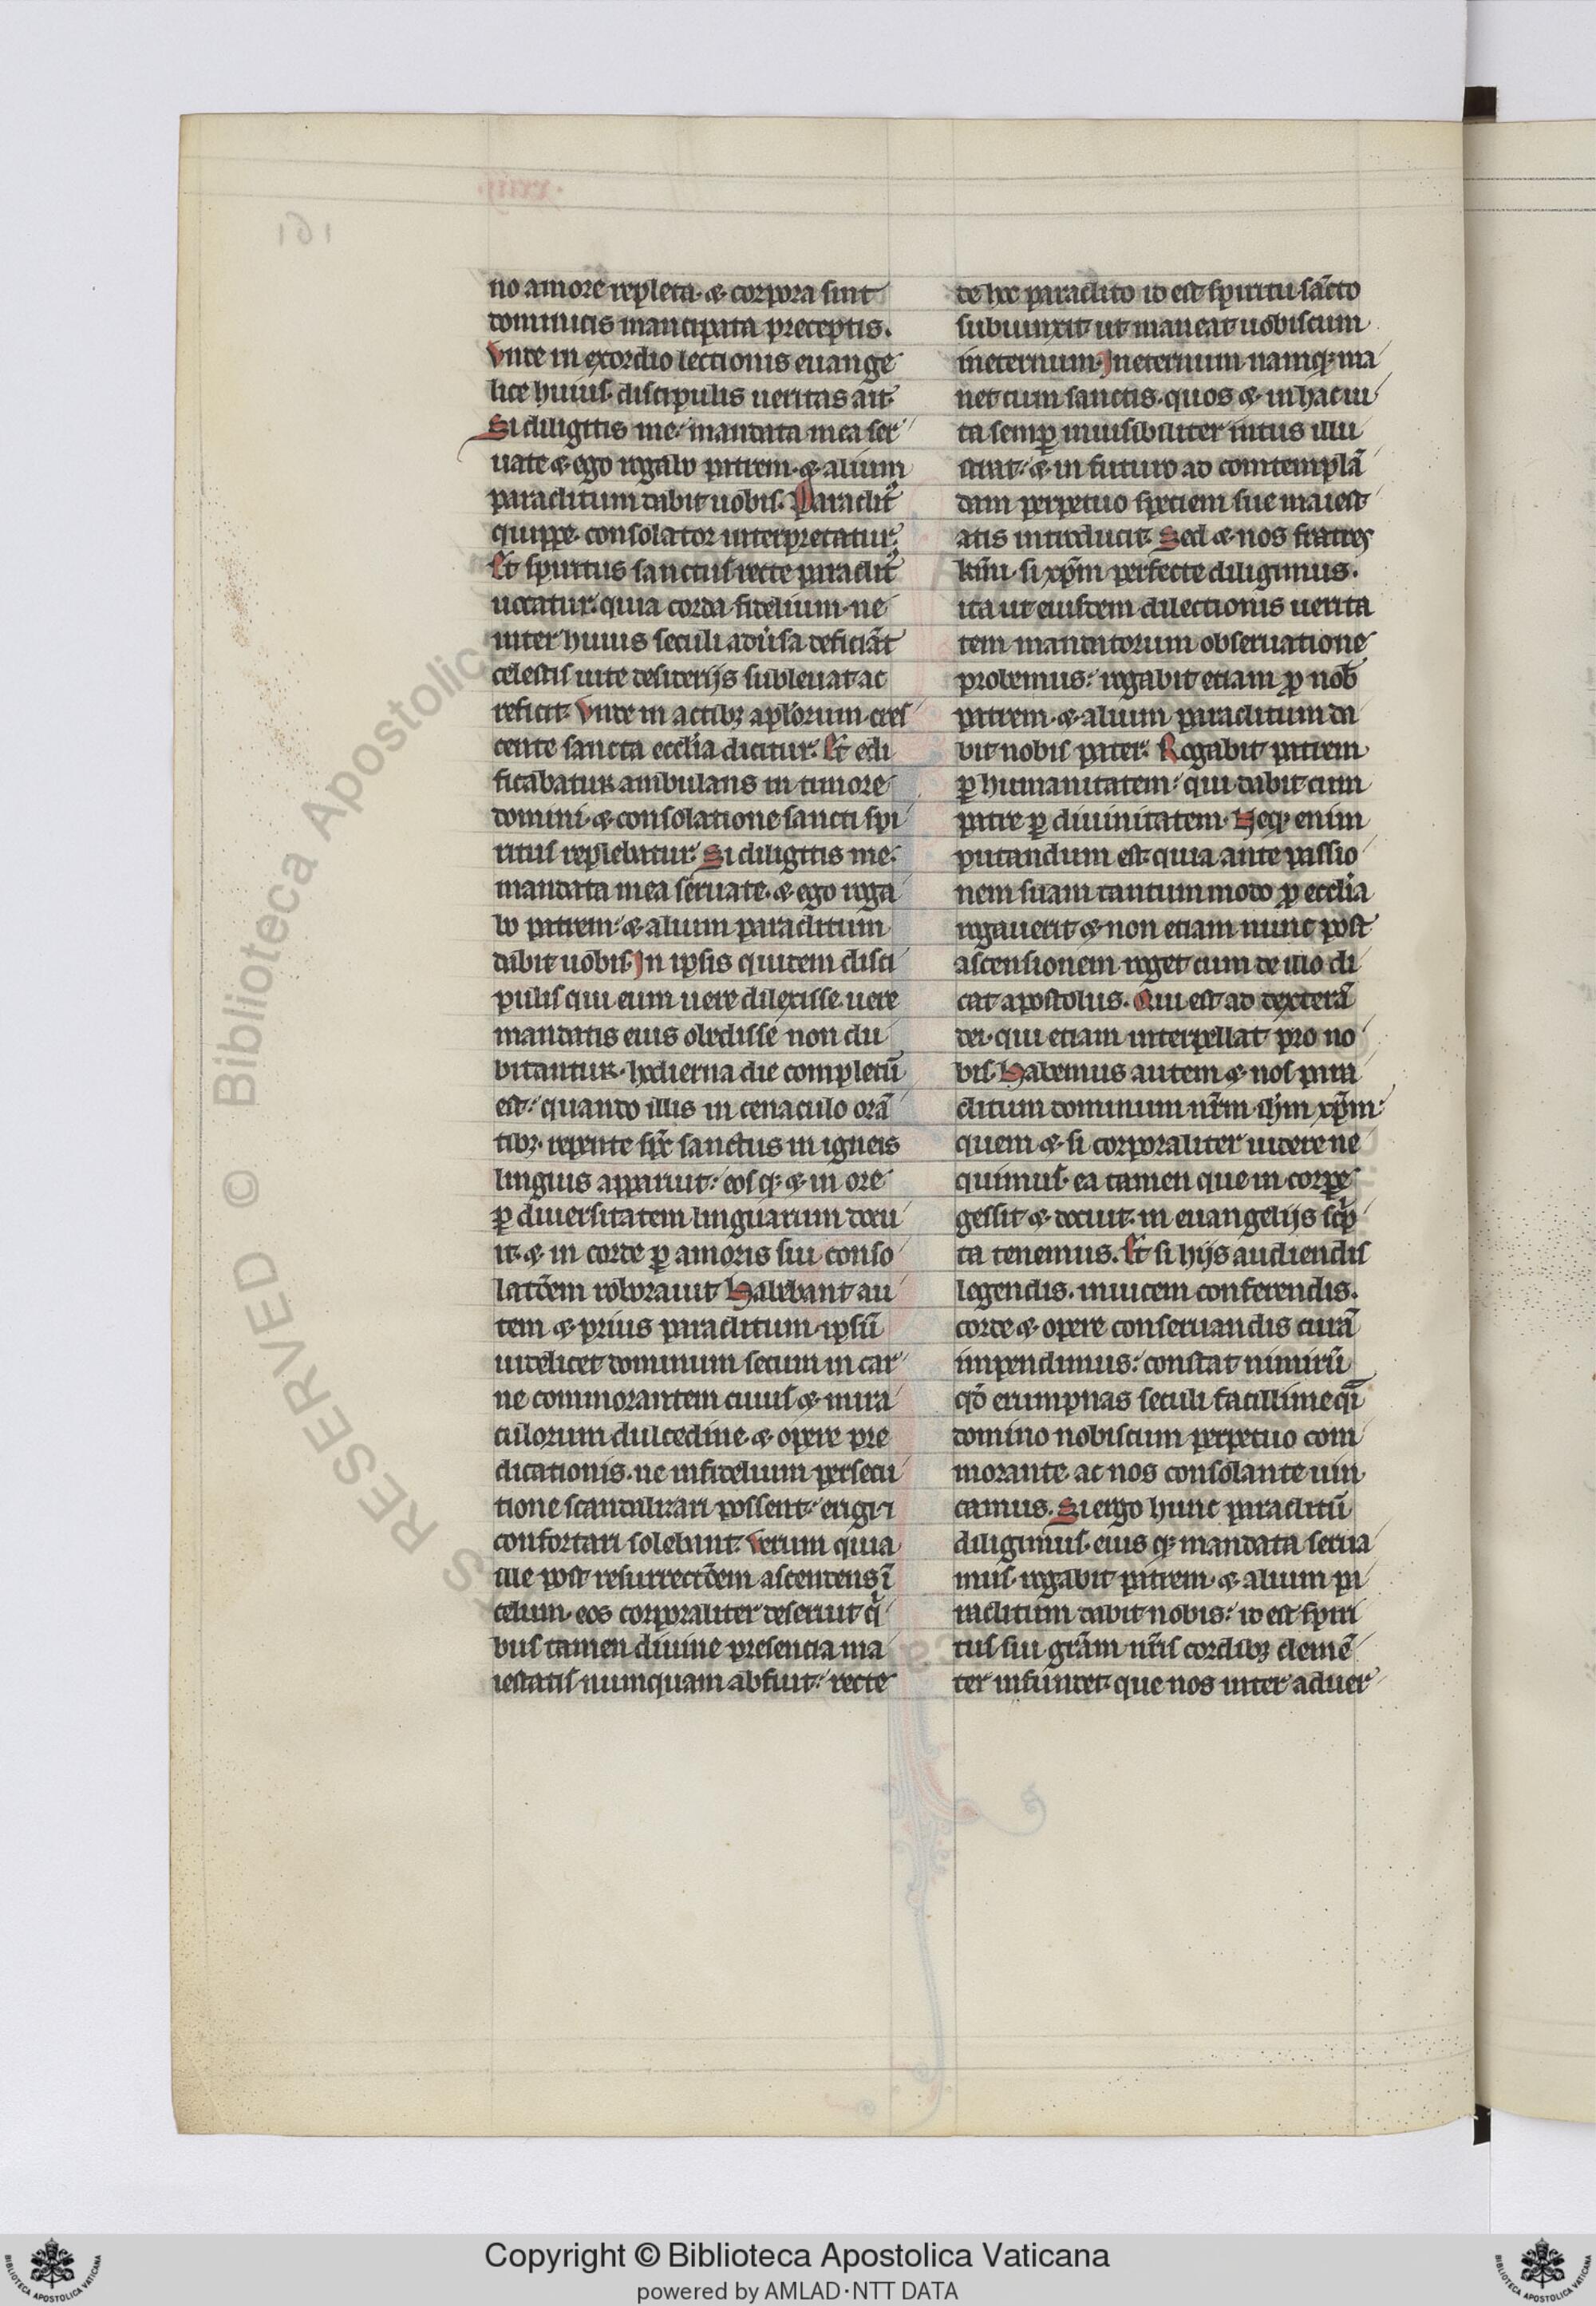 no amore repleta. ⁊ corpora sint
dominicis mancipata preceptis.
Vnde in exordio lectionis euange
lice huius. discipulis ueritas ait.
Si diligitis me. mandata mea ser
uate ⁊ ego rogabo patrem. ⁊ alium
paraclitum dabit uobis. Paraclitꝰ
quippe. consolator interpretatur.
Et spiritus sanctus recte paraclitꝰ
uocatur. quia corda fidelium. ne
inter huius seculi aduˀsa deficiāt
celestis uite desiderijs subleuat ac
reficit. Vnde in actibꝫ apl'orum. cres
cente sancta eccl'ia dicitur. Et edi
ficabatur ambulans in timore
domini. ⁊ consolatione sancti spi
ritus replebatur. Si diligitis me.
mandata mea seruate. ⁊ ego roga
bo patrem. ⁊ alium paraclitum
dabit uobis. In ipsis quidem disci
pulis qui eum uere dilexisse. uere
mandatis eius obedisse non du
bitantur. hodierna die completū
est. quando illis in cenaculo orā
tibꝫ. repente spc̄ sanctus in igneis
linguis apparuit. eosqꝫ ⁊ in ore
ꝑ diuersitatem linguarum docu
it. ⁊ in corde ꝑ amoris sui conso
latōem roborauit. Habebant au
tem ⁊ prius paraclitum. ipsū
uidelicet dominum secum in car
ne commorantem cuius ⁊ mira
culorum dulcedine. ⁊ opere pre
dicationis. ne infidelium persecu
tione scandalizari possent. erigi ⁊
confortari solebant. Verum quia
ille post resurrectōem ascendens ī
celum. eos corporaliter deseruit qi
bus tamen diuine presencia ma
iestatis numquam abfuit. recte
de hoc paraclito id est spiritu sāc̄to
subiunxit ut maneat uobiscum
ineternum. Ineternum namqꝫ ma
net cum sanctis. quos ⁊ in hac ui
ta semꝑ inuisibiliter intus illu
strat. ⁊ in futuro ad comtemplā
dam perpetuo speciem sue maiest
atis introducit. Sed ⁊ nos fratres
kmi. si xp̄m perfecte diligimus.
ita ut eiusdem dilectionis uerita
tem mandatorum obseruatione
probemus. rogabit etiam ꝓ nob̄
patrem. ⁊ alium paraclitum da
bit nobis pater. Rogabit patrem
ꝑ humanitatem. qui dabit cum
patre ꝑ diuinitatem. Neqꝫ enim
putandum est. quia ante passio
nem suam tantummodo ꝓ eccl'ia
rogauerit ⁊ non etiam nunc post
ascensionem roget cum de illo di
cat apostolus. Qui est ad dexterā
dei. qui etiam interpellat pro no
bis. Habemus autem ⁊ nos para
clitum dominum nr̄m ih̄m xp̄m.
quem ⁊ si corporaliter uidere ne
quimus. ea tamen que in corꝑe
gessit ⁊ docuit. in euangelijs scͥp
ta tenemus. Et si hijs audiendis
legendis. inuicem conferendis.
corde ⁊ opere conseruandis curā
impendimus. constat nimirū
qd̄ erumpnas seculi facillime qͣi
domino nobiscum perpetuo com
morante ac nos consolante uin
camus. Si ergo hunc paraclitū
diligimus. eiusqꝫ mandata serua
mus. rogabit patrem. ⁊ alium pa
raclitum dabit nobis. id est spiri
tus sui grām nr̄is cordibꝫ clemē
ter infundet. que nos inter aduer
Copyright © Biblioteca Apostolica Vaticana
powered by AMLAD·NTT DATA